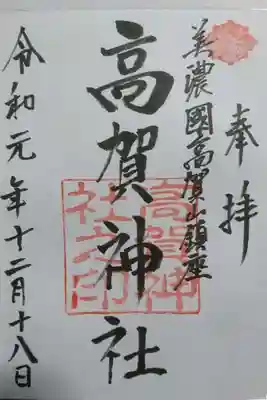 奉拝
美濃國高賀山鎮座
高賀神社
高賀神社之印
令和元年十二月十八日